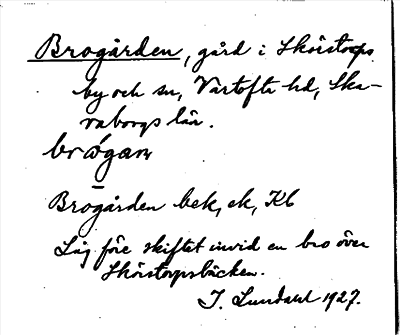 Brogården, gård i Skörstorps
by och sn, Vartofta hd, Ska-
raborgs län.
Brogården bek, ek, Kb
Låg före skiftet invid en bro över
Skörstorpsbäcken.
I. Lundahl 1927.